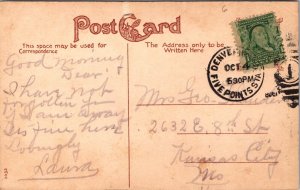 Post Card
This space may be used for
Correspondence
The Address only to be
Written Here
DENVER
OCT 4
530PM
FIVE POINTS STA.
Good morning
Dear
I have not
forgotten
I am away
fine here
Lovingly
Laura
Mrs Geo
2632 E. 8th St
Kansas City
Mo